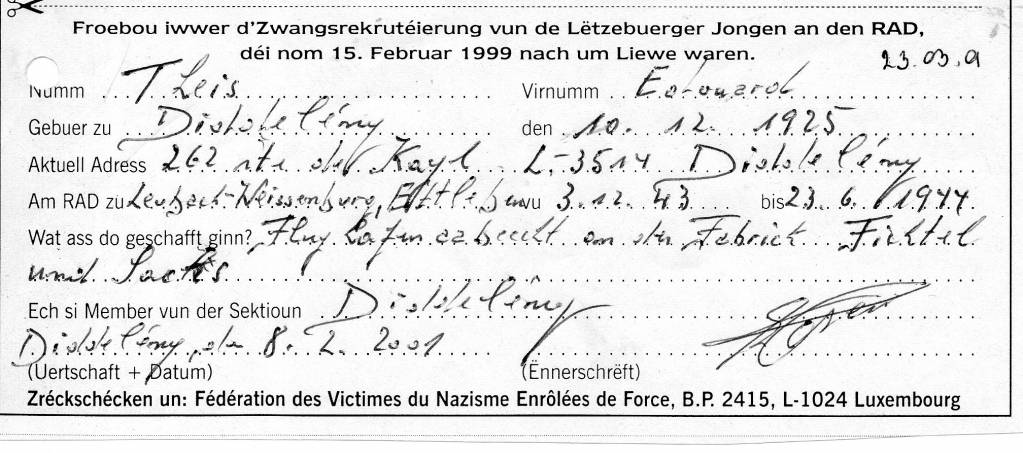 Froebou iwwer d'Zwangsrekrutéierung vun de Lëtzebuerger Jongen an den RAD,
déi nom 15. Februar 1999 nach um Liewe waren.
23.03.
Numm Theis Virnumm Edouard
Gebuer zu Diddeléng den 10. 12. 1925
Aktuell Adress 262 rte de Kayl L-3514 Diddeléng
Am RAD zu Weissenburg, vu 3.12.43 bis 23.6.1944.
Wat ass do geschafft ginn? Flughafen an der Fabrick Fichtel
und Sachs
Ech si Member vun der Sektioun Diddeléng
Diddeléng, de 8. 2. 2001
(Uertschaft + Datum) (Ënnerschrëft)
Zréckschécken un: Fédération des Victimes du Nazisme Enrôlées de Force, B.P. 2415, L-1024 Luxembourg